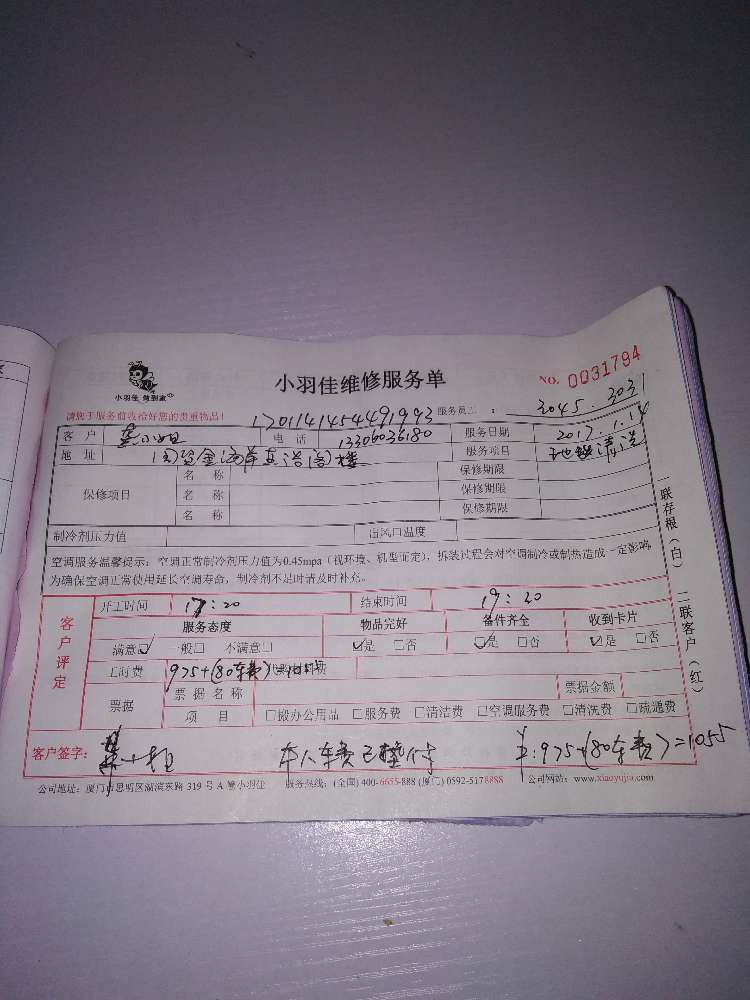 小羽佳 做到家
小羽佳维修服务单
NO. 0031794
请您于服务前收检好您的贵重物品!
1701141454491993
服务员工 : 3045 3031
客户 小姐 电话 13306036180 服务日期 2017.1.14
地址 国贸金海岸 楼 服务项目 地毯清洗
保修项目 名称 保修期限
名称 保修期限
名称 保修期限
制冷剂压力值 出风口温度
空调服务温馨提示:空调正常制冷剂压力值为0.45mpa(视环境、机型而定),拆装过程会对空调制冷或制热造成一定影响
为确保空调正常使用延长空调寿命,制冷剂不足时请及时补充。
一联存根(白) 二联客户(红)
客户评定
开工时间 17:20 结束时间 19:20
服务态度 物品完好 备件齐全 收到卡片
满意☑ 一般□ 不满意□ ☑是 □否 ☑是 □否 ☑是 □否
工时费 975+(80车费)
票据 票据名称 票据金额
项目 □搬办公用品 □服务费 □清洁费 □空调服务费 □清洗费 □疏通费
客户签字: 小姐 车费已垫付 975+(80车费)=1055
公司地址:厦门市思明区湖滨东路 319 号 A 幢小羽佳 服务热线:(全国) 400-6655-888 (厦门) 0592-5178888 公司网站:www.xiaoyujia.com